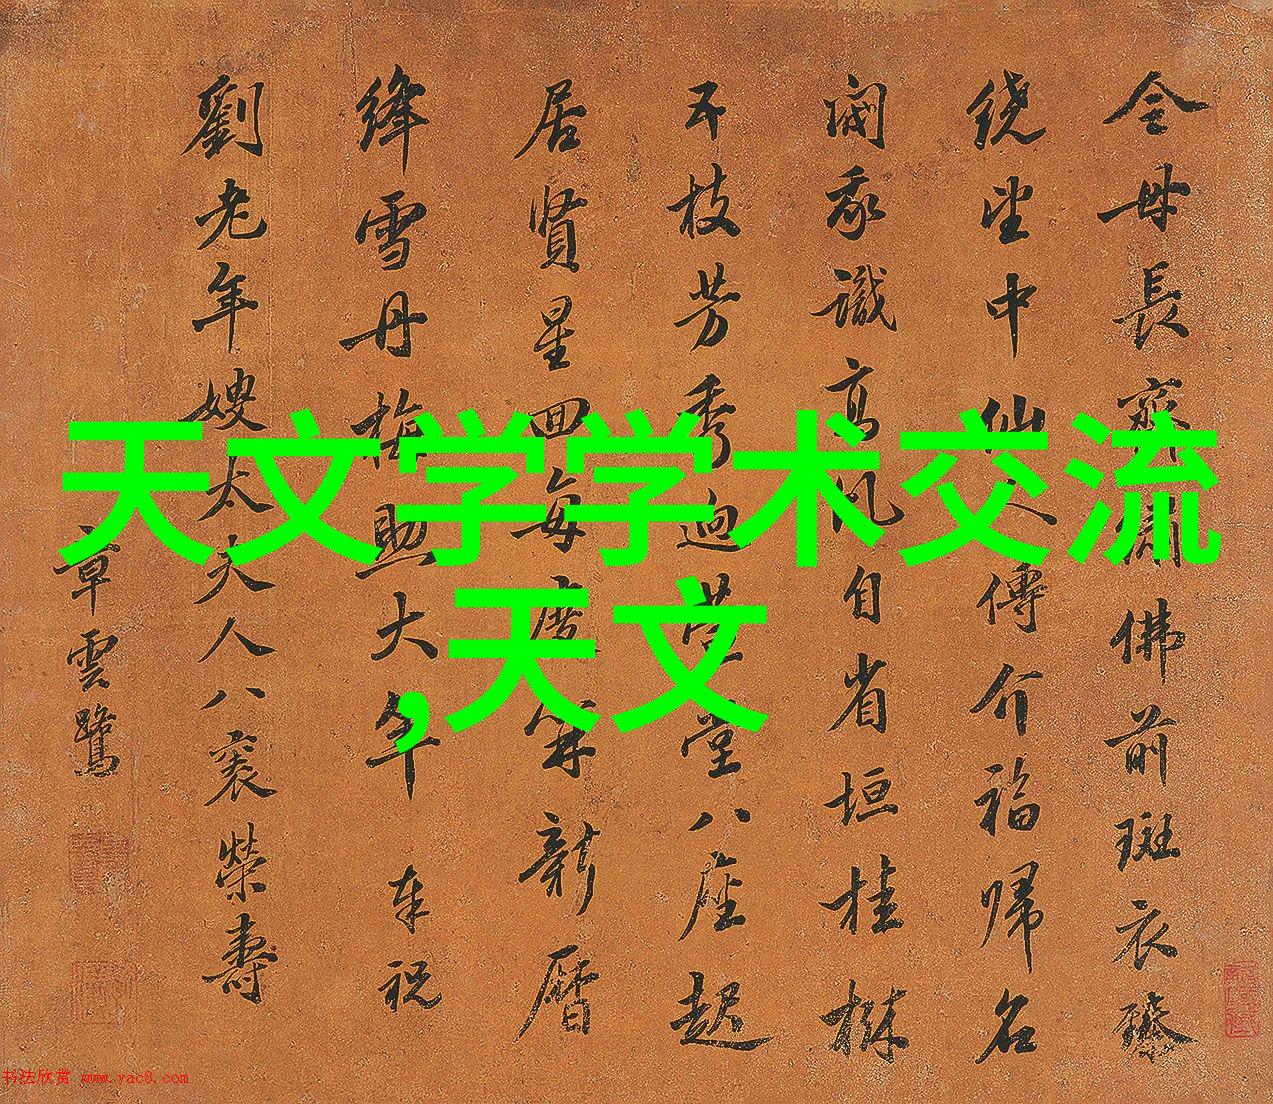 天文学学术交流
,天文
金母長齋繡佛前斑衣
繞坐中仙人傳介福歸名
閥我識高風自省垣桂林
不枝芳秀迥 堂八座起
居賢星回每度算新曆
絳雪丹梅照大年 奉祝
劉老年嫂太夫人八袠榮壽
章雲鷺
书法欣赏 www.yac8.com